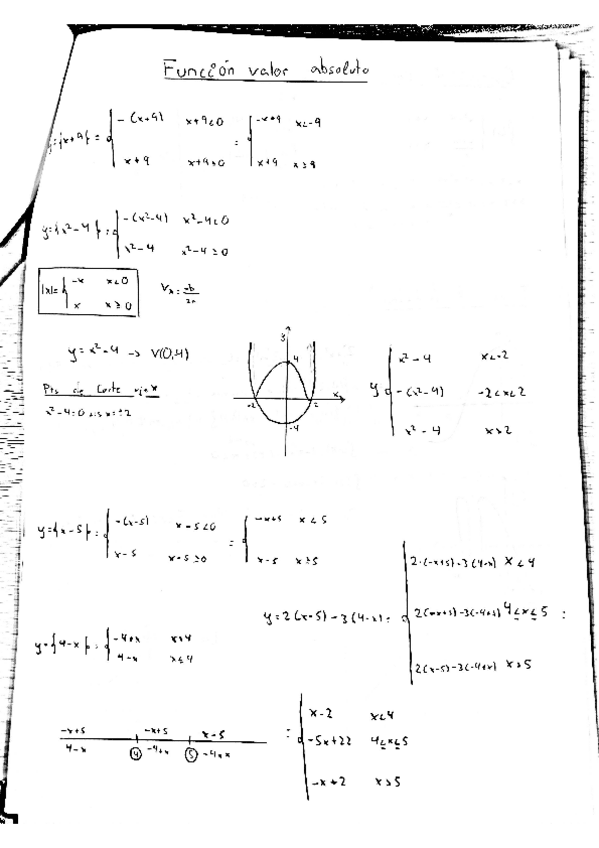 Función valor absoluto
y=|x+9|= { -(x+9) x+9<0 = { -x+9 x<-9
x+9 x+9≥0 x+9 x≥9
y=|x²-4|= { -(x²-4) x²-4<0
x²-4 x²-4≥0
|x|= { -x x<0
x x≥0
Vx = -b/2a
y=x²-4 -> V(0,4)
Pts de Corte eje x
x²-4=0 x=±2
y
4
-2 2 x
-4
y { x²-4 x<-2
-(x²-4) -2<x<2
x²-4 x>2
y=|x-5|= { -(x-5) x-5<0 = { -x+5 x<5
x-5 x-5≥0 x-5 x≥5
y=2(x-5)-3(4-x)= { 2·(-x+5)-3(4-x) x<4
2(-x+5)-3(-4+x) 4≤x≤5 =
2(x-5)-3(-4+x) x>5
y=|4-x|= { -4+x x>4
4-x x≤4
-x+5 -x+5 x-5
4-x 4 -4+x 5 -4+x
= { x-2 x<4
-5x+22 4≤x≤5
-x+2 x>5